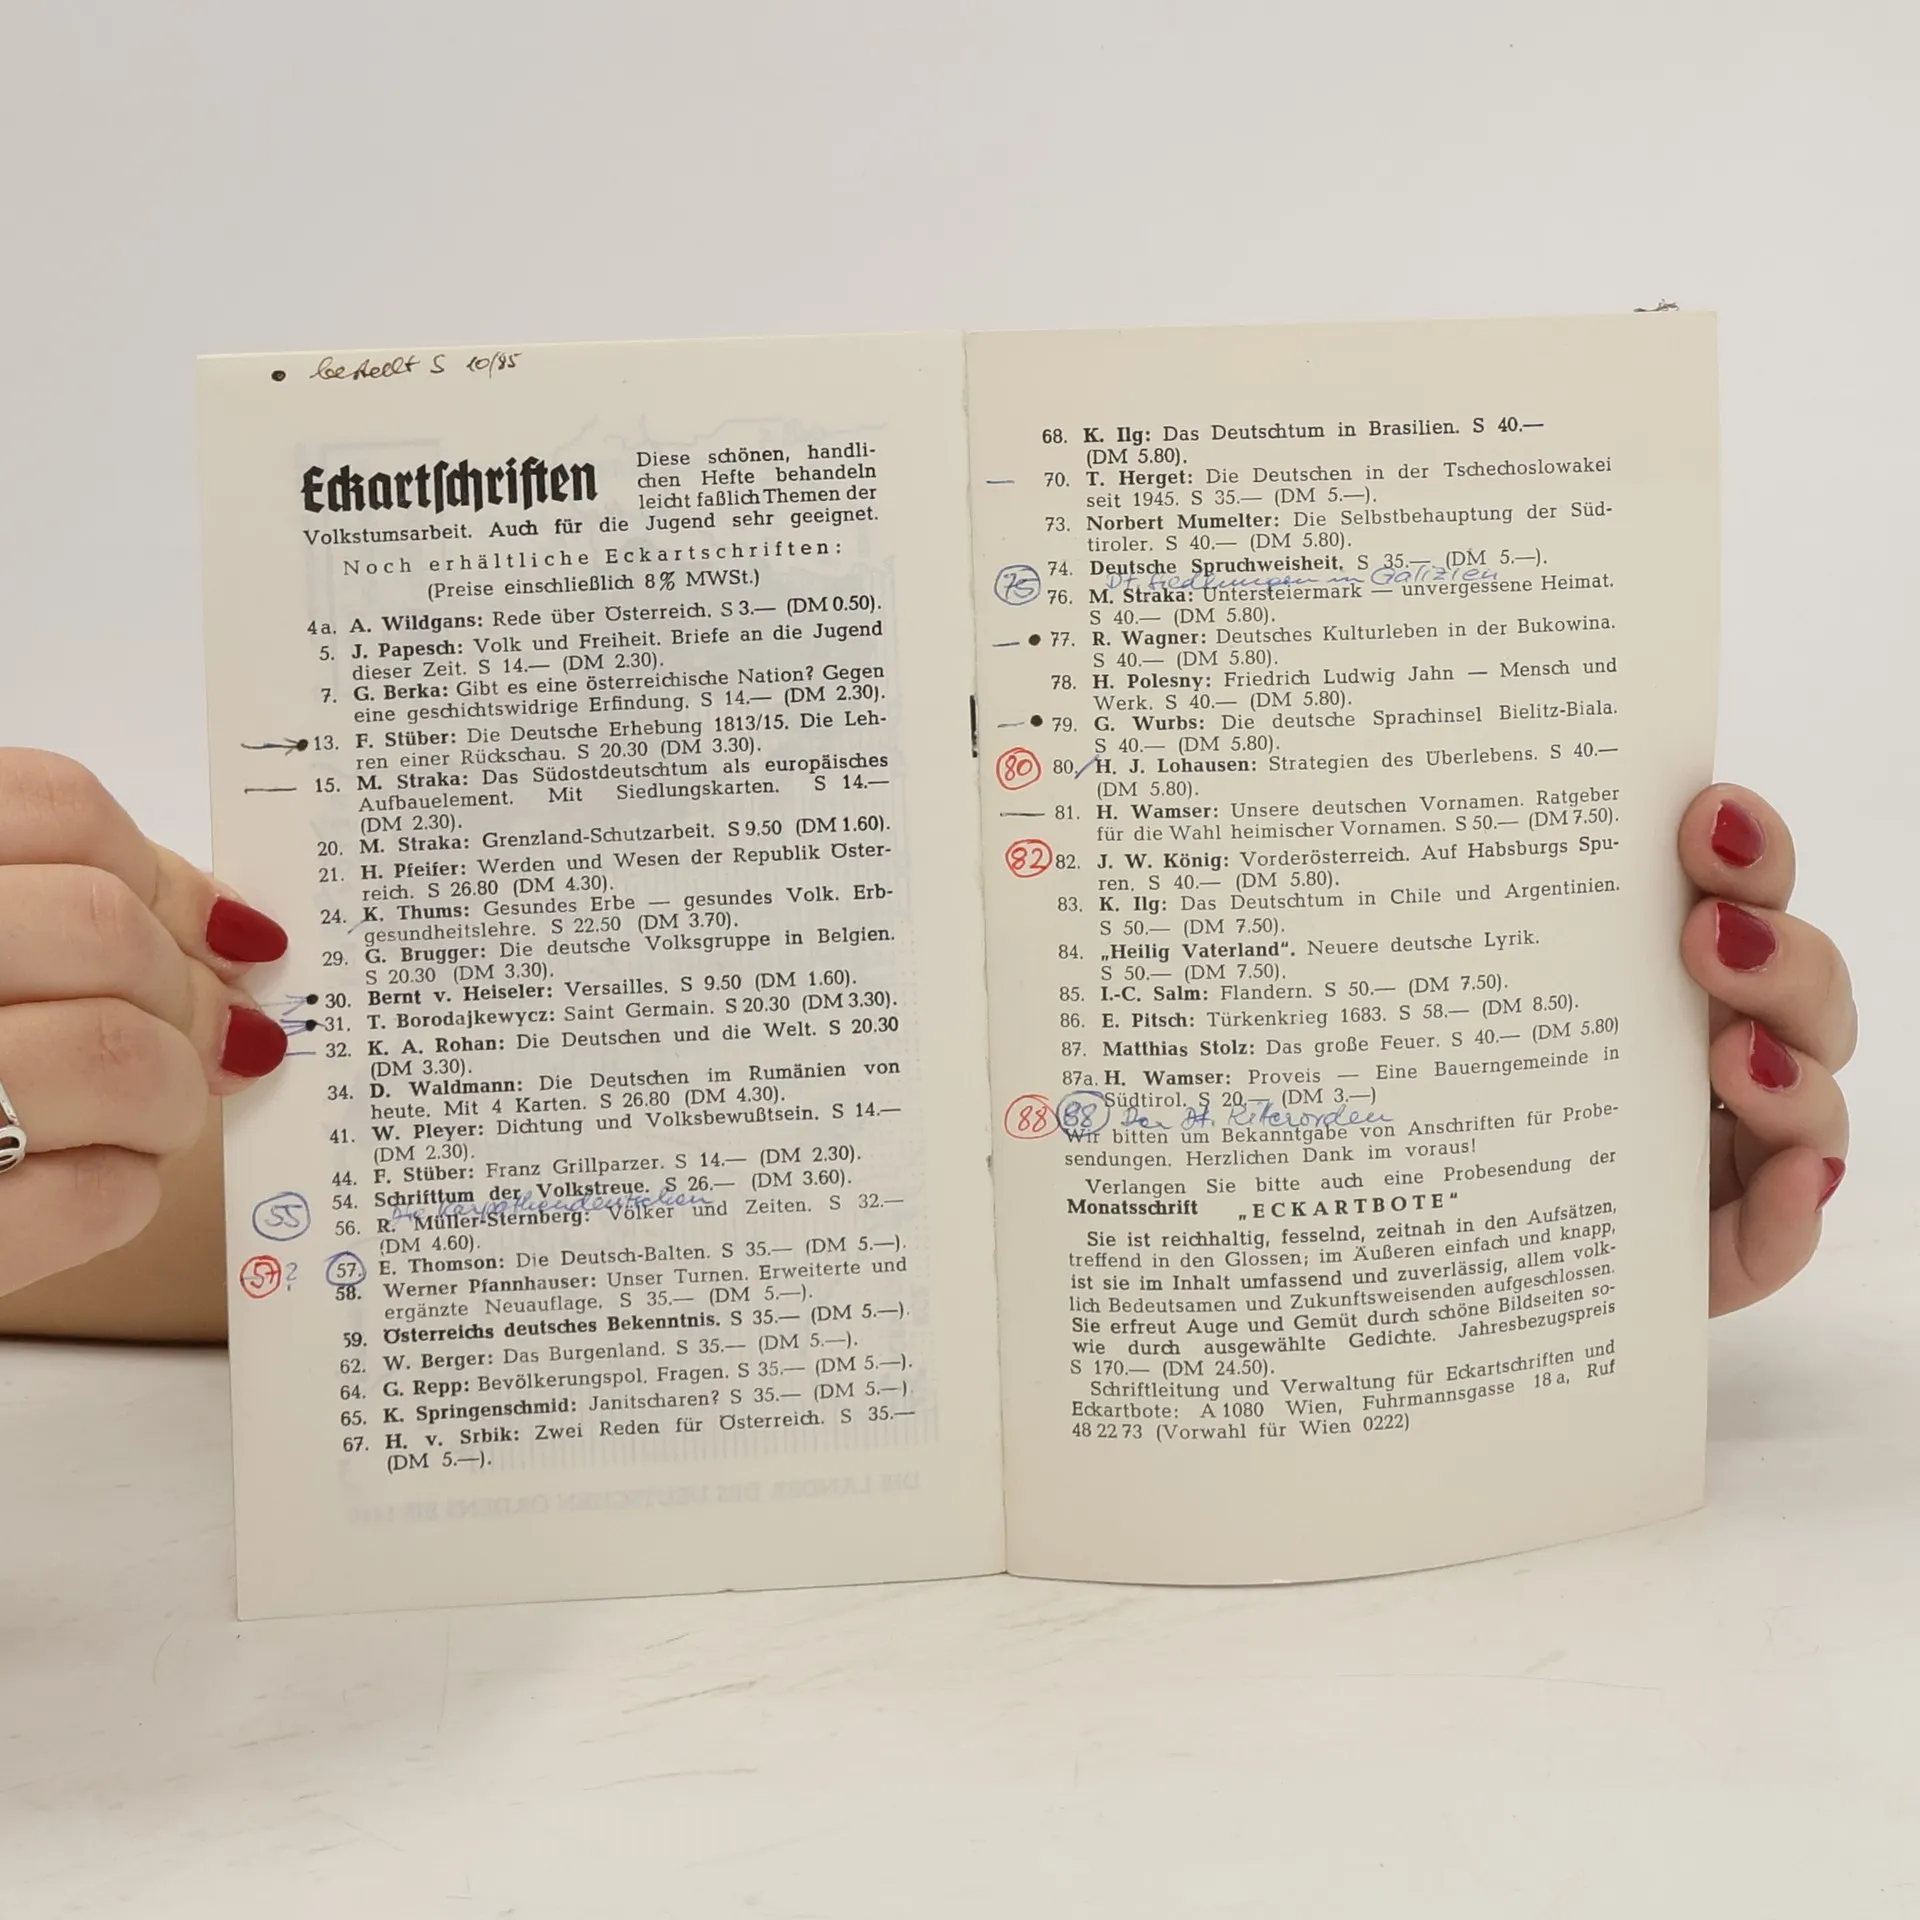 • bestellt S 10/85
Eckartschriften
Diese schönen, handli-
chen Hefte behandeln
leicht faßlich Themen der
Volkstumsarbeit. Auch für die Jugend sehr geeignet.
Noch erhältliche Eckartschriften:
(Preise einschließlich 8% MWSt.)
4a. A. Wildgans: Rede über Österreich. S 3.— (DM 0.50).
5. J. Papesch: Volk und Freiheit. Briefe an die Jugend
dieser Zeit. S 14.— (DM 2.30).
7. G. Berka: Gibt es eine österreichische Nation? Gegen
eine geschichtswidrige Erfindung. S 14.— (DM 2.30).
13. F. Stüber: Die Deutsche Erhebung 1813/15. Die Leh-
ren einer Rückschau. S 20.30 (DM 3.30).
15. M. Straka: Das Südostdeutschtum als europäisches
Aufbauelement. Mit Siedlungskarten. S 14.—
(DM 2.30).
20. M. Straka: Grenzland-Schutzarbeit. S 9.50 (DM 1.60).
21. H. Pfeifer: Werden und Wesen der Republik Öster-
reich. S 26.80 (DM 4.30).
24. K. Thums: Gesundes Erbe — gesundes Volk. Erb-
gesundheitslehre. S 22.50 (DM 3.70).
29. G. Brugger: Die deutsche Volksgruppe in Belgien.
S 20.30 (DM 3.30).
30. Bernt v. Heiseler: Versailles. S 9.50 (DM 1.60).
31. T. Borodajkewycz: Saint Germain. S 20.30 (DM 3.30).
32. K. A. Rohan: Die Deutschen und die Welt. S 20.30
(DM 3.30).
34. D. Waldmann: Die Deutschen im Rumänien von
heute. Mit 4 Karten. S 26.80 (DM 4.30).
41. W. Pleyer: Dichtung und Volksbewußtsein. S 14.—
(DM 2.30).
44. F. Stüber: Franz Grillparzer. S 14.— (DM 2.30).
54. Schrifttum der Volkstreue. S 26.— (DM 3.60).
55 Die Karpathendeutschen
56. R. Müller-Sternberg: Völker und Zeiten. S 32.—
(DM 4.60).
57? 57. E. Thomson: Die Deutsch-Balten. S 35.— (DM 5.—).
58. Werner Pfannhauser: Unser Turnen. Erweiterte und
ergänzte Neuauflage. S 35.— (DM 5.—).
59. Österreichs deutsches Bekenntnis. S 35.— (DM 5.—).
62. W. Berger: Das Burgenland. S 35.— (DM 5.—).
64. G. Repp: Bevölkerungspol. Fragen. S 35.— (DM 5.—).
65. K. Springenschmid: Janitscharen? S 35.— (DM 5.—).
67. H. v. Srbik: Zwei Reden für Österreich. S 35.—
(DM 5.—).
68. K. Ilg: Das Deutschtum in Brasilien. S 40.—
(DM 5.80).
70. T. Herget: Die Deutschen in der Tschechoslowakei
seit 1945. S 35.— (DM 5.—).
73. Norbert Mumelter: Die Selbstbehauptung der Süd-
tiroler. S 40.— (DM 5.80).
74. Deutsche Spruchweisheit. S 35.— (DM 5.—).
75 Dt. Siedlungen in Galizien
76. M. Straka: Untersteiermark — unvergessene Heimat.
S 40.— (DM 5.80).
77. R. Wagner: Deutsches Kulturleben in der Bukowina.
S 40.— (DM 5.80).
78. H. Polesny: Friedrich Ludwig Jahn — Mensch und
Werk. S 40.— (DM 5.80).
79. G. Wurbs: Die deutsche Sprachinsel Bielitz-Biala.
S 40.— (DM 5.80).
80 80. H. J. Lohausen: Strategien des Überlebens. S 40.—
(DM 5.80).
81. H. Wamser: Unsere deutschen Vornamen. Ratgeber
für die Wahl heimischer Vornamen. S 50.— (DM 7.50).
82 82. J. W. König: Vorderösterreich. Auf Habsburgs Spu-
ren. S 40.— (DM 5.80).
83. K. Ilg: Das Deutschtum in Chile und Argentinien.
S 50.— (DM 7.50).
84. „Heilig Vaterland“. Neuere deutsche Lyrik.
S 50.— (DM 7.50).
85. I.-C. Salm: Flandern. S 50.— (DM 7.50).
86. E. Pitsch: Türkenkrieg 1683. S 58.— (DM 8.50).
87. Matthias Stolz: Das große Feuer. S 40.— (DM 5.80)
87a. H. Wamser: Proveis — Eine Bauerngemeinde in
Südtirol. S 20.— (DM 3.—)
88 88 Der Dt. Ritterorden
Wir bitten um Bekanntgabe von Anschriften für Probe-
sendungen. Herzlichen Dank im voraus!
Verlangen Sie bitte auch eine Probesendung der
Monatsschrift „ECKARTBOTE“
Sie ist reichhaltig, fesselnd, zeitnah in den Aufsätzen,
treffend in den Glossen; im Äußeren einfach und knapp,
ist sie im Inhalt umfassend und zuverlässig, allem volk-
lich Bedeutsamen und Zukunftsweisenden aufgeschlossen.
Sie erfreut Auge und Gemüt durch schöne Bildseiten so-
wie durch ausgewählte Gedichte. Jahresbezugspreis
S 170.— (DM 24.50).
Schriftleitung und Verwaltung für Eckartschriften und
Eckartbote: A 1080 Wien, Fuhrmannsgasse 18 a, Ruf
48 22 73 (Vorwahl für Wien 0222)